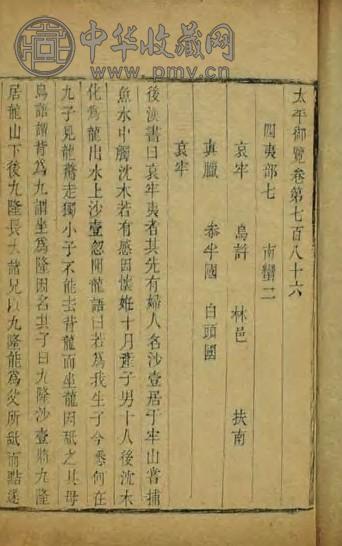 中华收藏网
www.pmv.cn
太平御覽卷第七百八十六
四夷部七　南蠻二
哀牢　烏滸　林邑　扶南
眞臘　叅半國　白頭國
哀牢
後漢書曰哀牢夷者其先有婦人名沙壹居于牢山嘗捕
魚水中觸沈木若有感因懷妊十月產子男十人後沈木
化為龍出水上沙壹忽聞龍語曰若為我生子今悉何在
九子見龍驚走獨小子不能去背龍而坐龍因舐之其母
鳥語謂背為九謂坐為隆因名其子曰九隆沙壹將九隆
居龍山下後九隆長大諸兄以九隆能為父所舐而黠遂